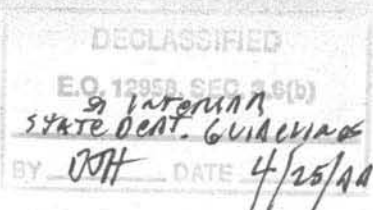 DECLASSIFIED
E.O. 12958, SEC. 3.6(b)
STATE DEPT. GUIDELINES
BY DATE 4/25/